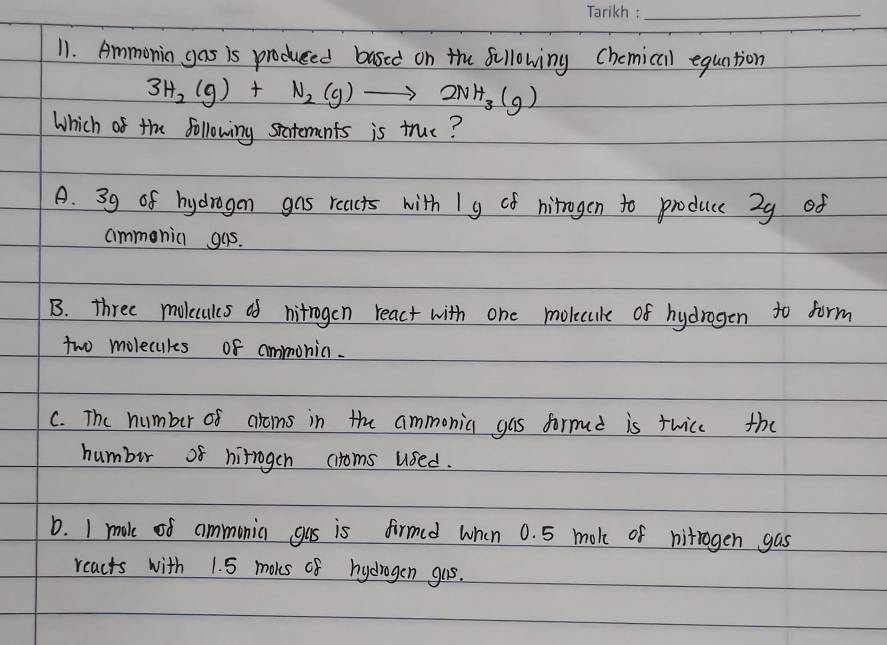 Tarikh :
11. Ammonia gas is produced based on the following Chemical equation
3H₂ (g) + N₂ (g) ⟶ 2NH₃ (g)
Which of the following statements is true?
A. 3g of hydrogen gas reacts with 1g of nitrogen to produce 2g of
ammonia gas.
B. Three molecules of nitrogen react with one molecule of hydrogen to form
two molecules of ammonia.
C. The number of atoms in the ammonia gas formed is twice the
number of nitrogen atoms used.
D. 1 mole of ammonia gas is formed when 0.5 mole of nitrogen gas
reacts with 1.5 moles of hydrogen gas.